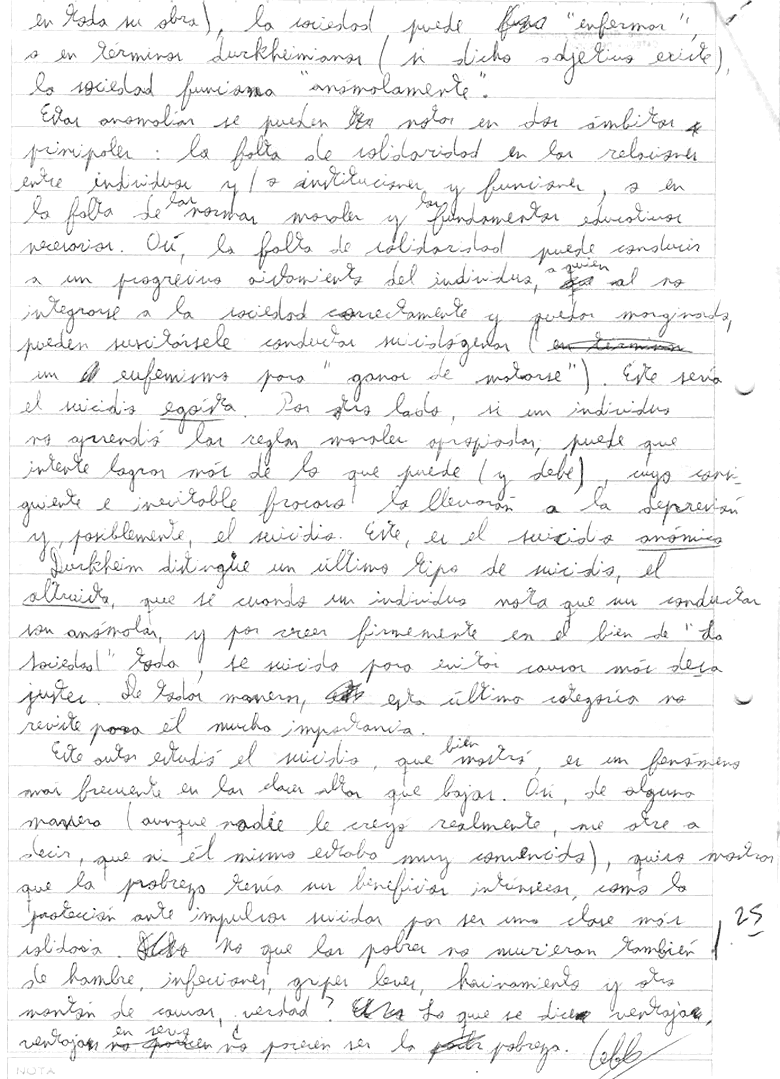 en toda su obra), la sociedad puede "enfermar",
o en términos durkheimianos (si dicho adjetivo existe),
la sociedad funciona "anómolamente".
Estas anomalías se pueden notar en dos ámbitos
principales: la falta de solidaridad en las relaciones
entre individuos y/o instituciones y funciones, o en
la falta de las normas morales y los fundamentos educativos
necesarios. Así, la falta de solidaridad puede conducir
a un progresivo aislamiento del individuo, a quien al no
integrarse a la sociedad correctamente y quedar marginado,
pueden suscitársele conductas suicidógenas (en términos
un eufemismo para "ganas de matarse"). Este sería
el suicidio egoísta. Por otro lado, si un individuo
no aprendió las reglas morales apropiadas, puede que
intente lograr más de lo que puede (y debe), cuyo consi-
guiente e inevitable fracaso lo llevarán a la depresión
y, posiblemente, el suicidio. Este, es el suicidio anómico
Durkheim distingue un último tipo de suicidio, el
altruista, que se cuando un individuo nota que sus conductas
son anómolas, y por creer firmemente en el bien de "La
sociedad" toda, se suicida para evitar causar más desa
justes. De todas maneras, esta última categoría no
reviste para él mucha importancia.
Este autor estudió el suicidio, que bien mostró, es un fenómeno
más frecuente en las clases altas que bajas. Así, de alguna
manera (aunque nadie le creyó realmente, me atre a
decir, que ni él mismo estaba muy convencido), quiso mostrar
que la probreza tenía sus beneficios intrínsecos, como la
protección ante impulsos suicidas por ser una clase más
solidaria. No que los pobres no murieran también
25
de hambre, infecciones, gripes leves, hacinamiento y otro
montón de causas, verdad? Lo que se dice ventajas,
ventajas en serio no parecen ser la pobreza.
NOTA